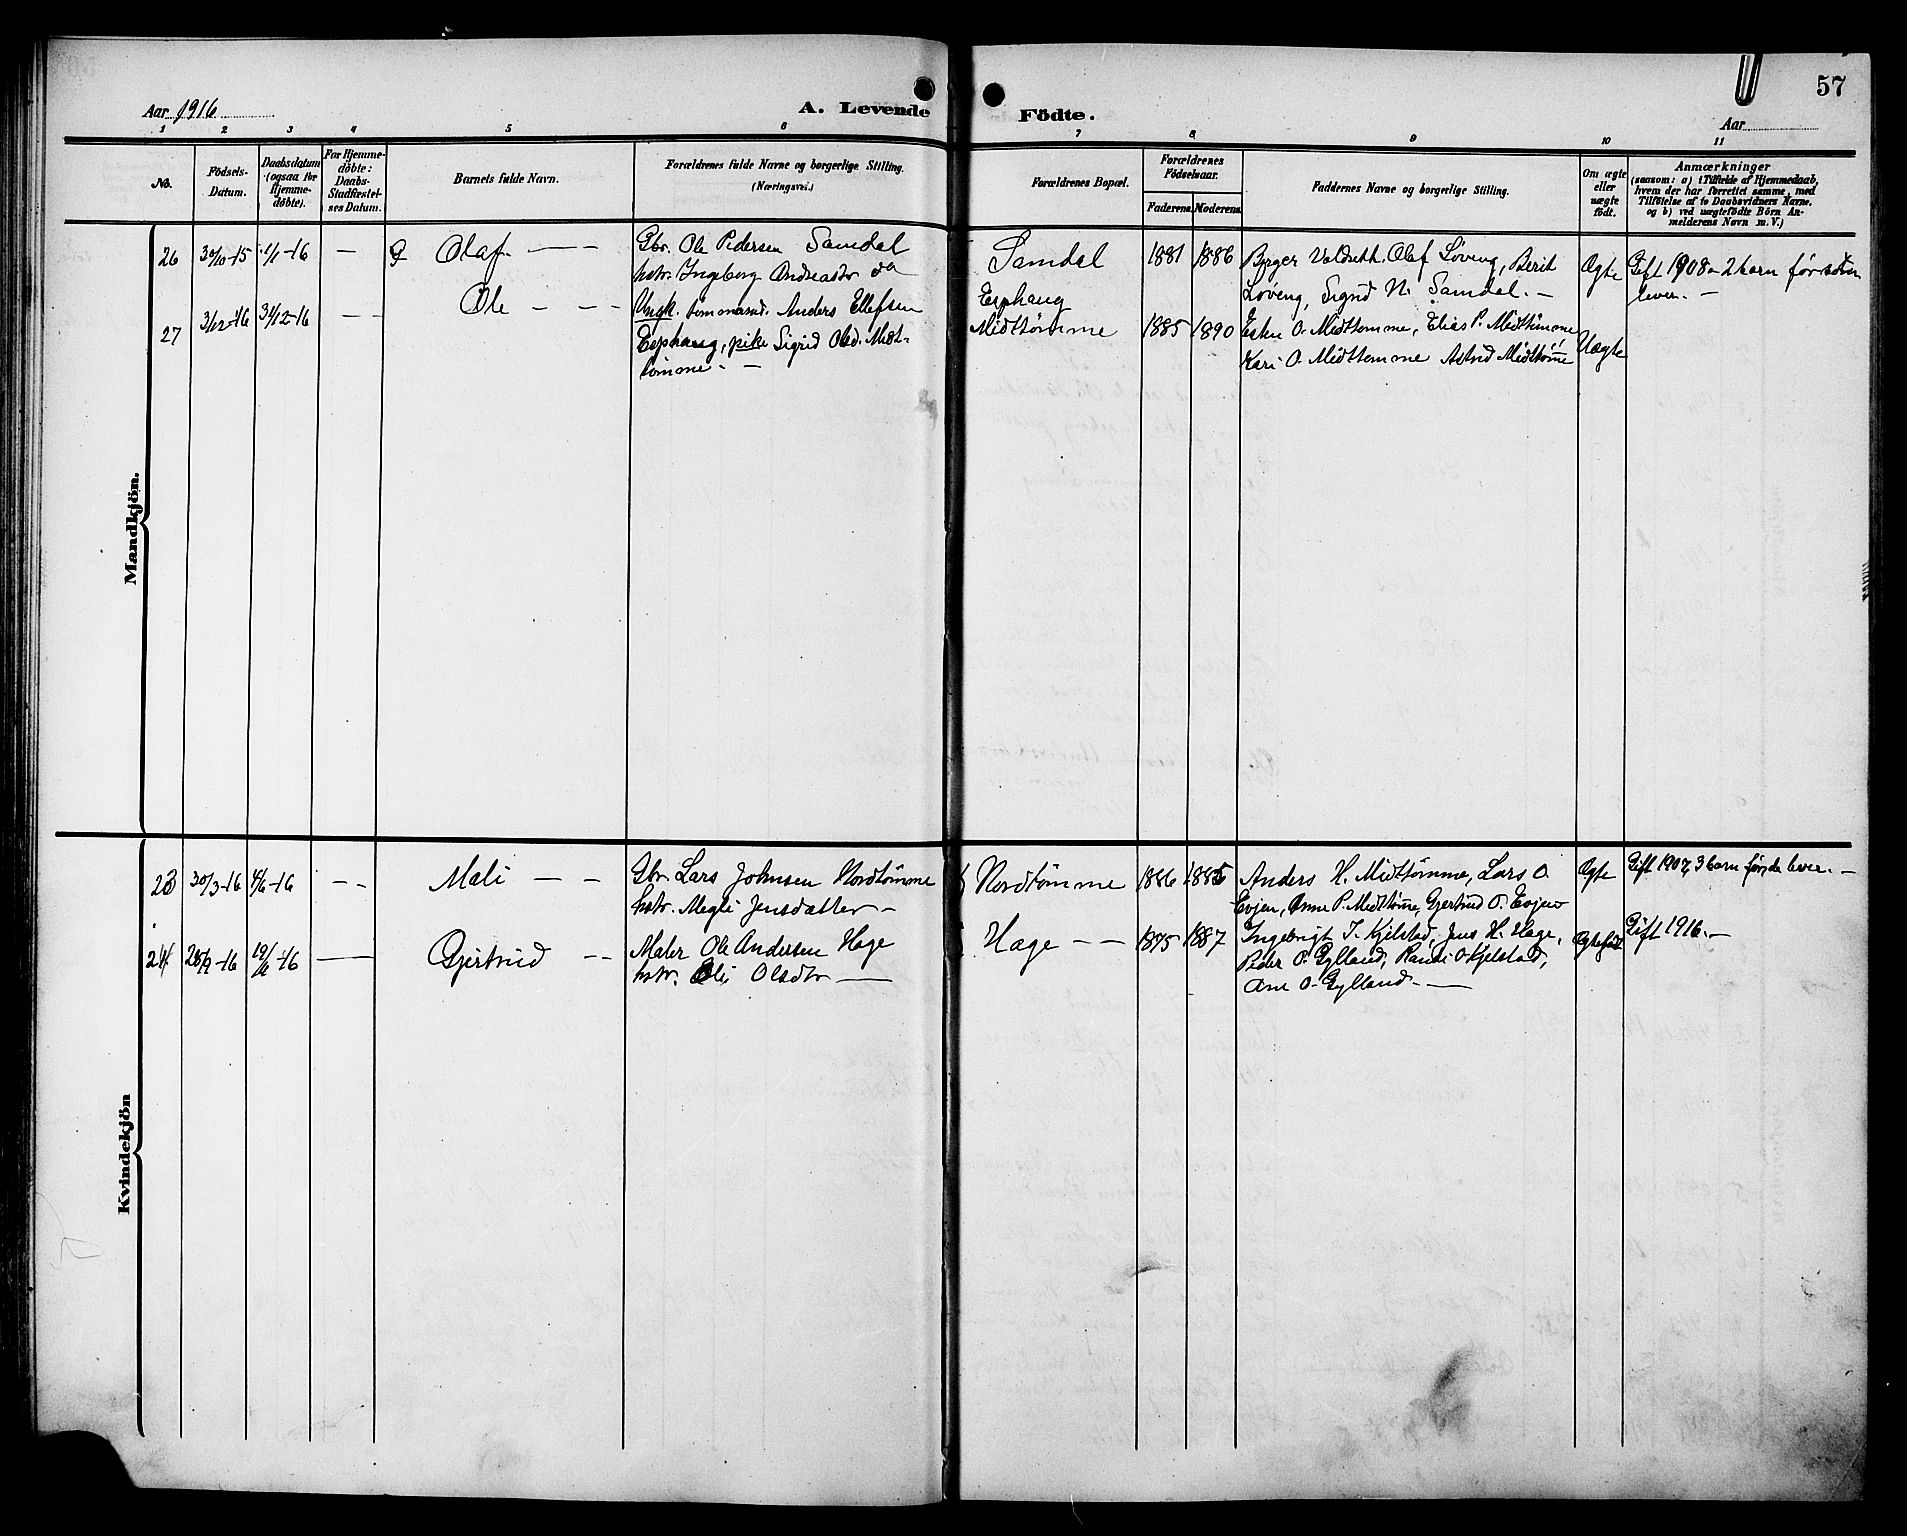 57
Aar 1916
A. Levende Födte.
Aar
1 2 3 4 5 6 7 8 9 10 11
No.
Födsels-
Datum.
Daabsdatum
(ogsaa for
Hjemme-
døbte).
For Hjemme-
døbte:
Daabs-
Stadfæstel-
ses Datum.
Barnets fulde Navn.
Forældrenes fulde Navne og borgerlige Stilling.
(Næringsvei.)
Forældrenes Bopæl.
Forældrenes
Fødselsaar.
Faderens. Moderens.
Faddernes Navne og borgerlige Stilling.
Om ægte
eller
uægte
født.
Anmærkninger
(saasom: a) i Tilfælde af Hjemmedaab,
hvem der har forrettet samme, med
Tilføielse af to Daabsvidners Navne.
og b) ved uægtefødte Börn An-
melderens Navn m. V.)
Mandkjön.
26 30/10-15 1/1-16 — Olaf — Gbr. Ole Pedersen Samdal
hstr. Ingeborg Andreasdr do
Samdal 1881 1886 Birger Voldseth. Olaf Løveng, Berit
Løveng, Sigrid N. Samdal. —
Ægte Gift 1908 - 2 barn før
lever. —
27 3/12-16 31/12-16 — Ole — Ungk. tømmermd. Anders Ellefsen
Ersphaug, pike Sigrid Olsd. Midt-
tømme. —
Ersphaug
Midttømme 1885 1890 Esten O. Midttømme, Elias P. Midttømme,
Kari O. Midttømme Astrid Midttømme
Uægte
Kvindekjön
23 30/3-16 4/6-16 — Mali — Gbr. Lars Johnsen Nordtømme
hstr. Magli Jensdatter —
Nordtømme 1886 1885 Anders H. Midttømme, Lars O.
Evjen, Anne P. Midttømme, Gjertrud O. Evjen
Ægte Gift 1907, 3 barn før, de lever. —
24 -16 -16 — Gjertrud — Maler Ole Andersen Hage
hstr. Eli Olsdtr —
Hage — 1875 1887 Ingebrigt J. Kjelstad, Jens H. Hage,
Peder O. Gylland, Randi O. Kjelstad,
Ane O. Gylland. —
Ægtefødt Gift 1916. —